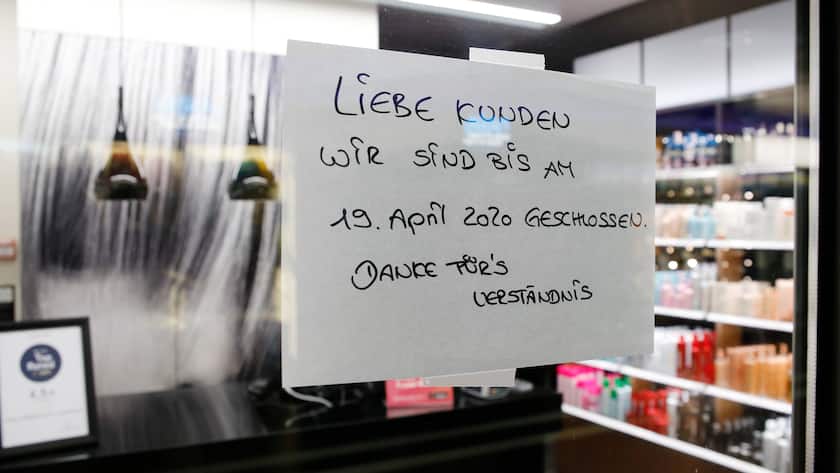 LIEBE KUNDEN
WIR SIND BIS AM
19. April 2020 GESCHLOSSEN.
DANKE FÜR'S
VERSTÄNDNIS